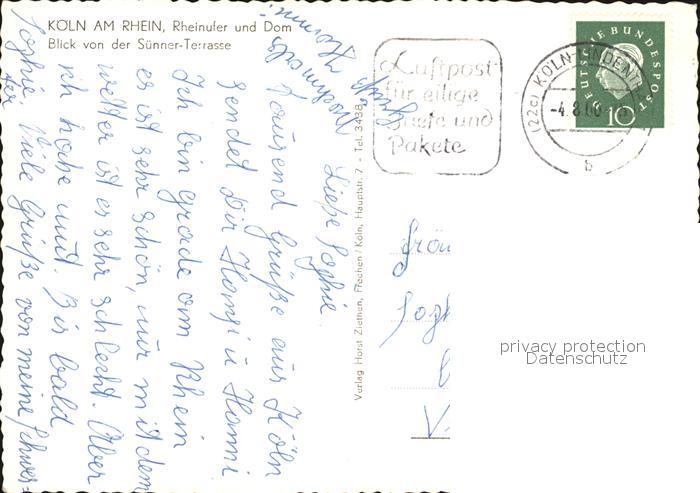 KÖLN AM RHEIN, Rheinufer und Dom
Blick von der Sünner-Terrasse
Liebe Sophie
Tausend Grüße aus Köln
sendet Dir Hansi u Hanni
Ich bin grade am Rhein
es ist sehr schön, nur mit dem
wetter ist es sehr schlecht. Aber
ich habe mut. Bis bald
Sophie. Viele Grüße von meine Schwes=
ter
Nochmals
Hanni
Verlag Horst Ziethen, Frechen/Köln, Hauptstr. 7 - Tel. 3438
Luftpost
für eilige
Briefe und
Pakete
(22c) KÖLN
-4.8.60
b
DEUTSCHE BUNDESPOST
10
V.
privacy protection
Datenschutz